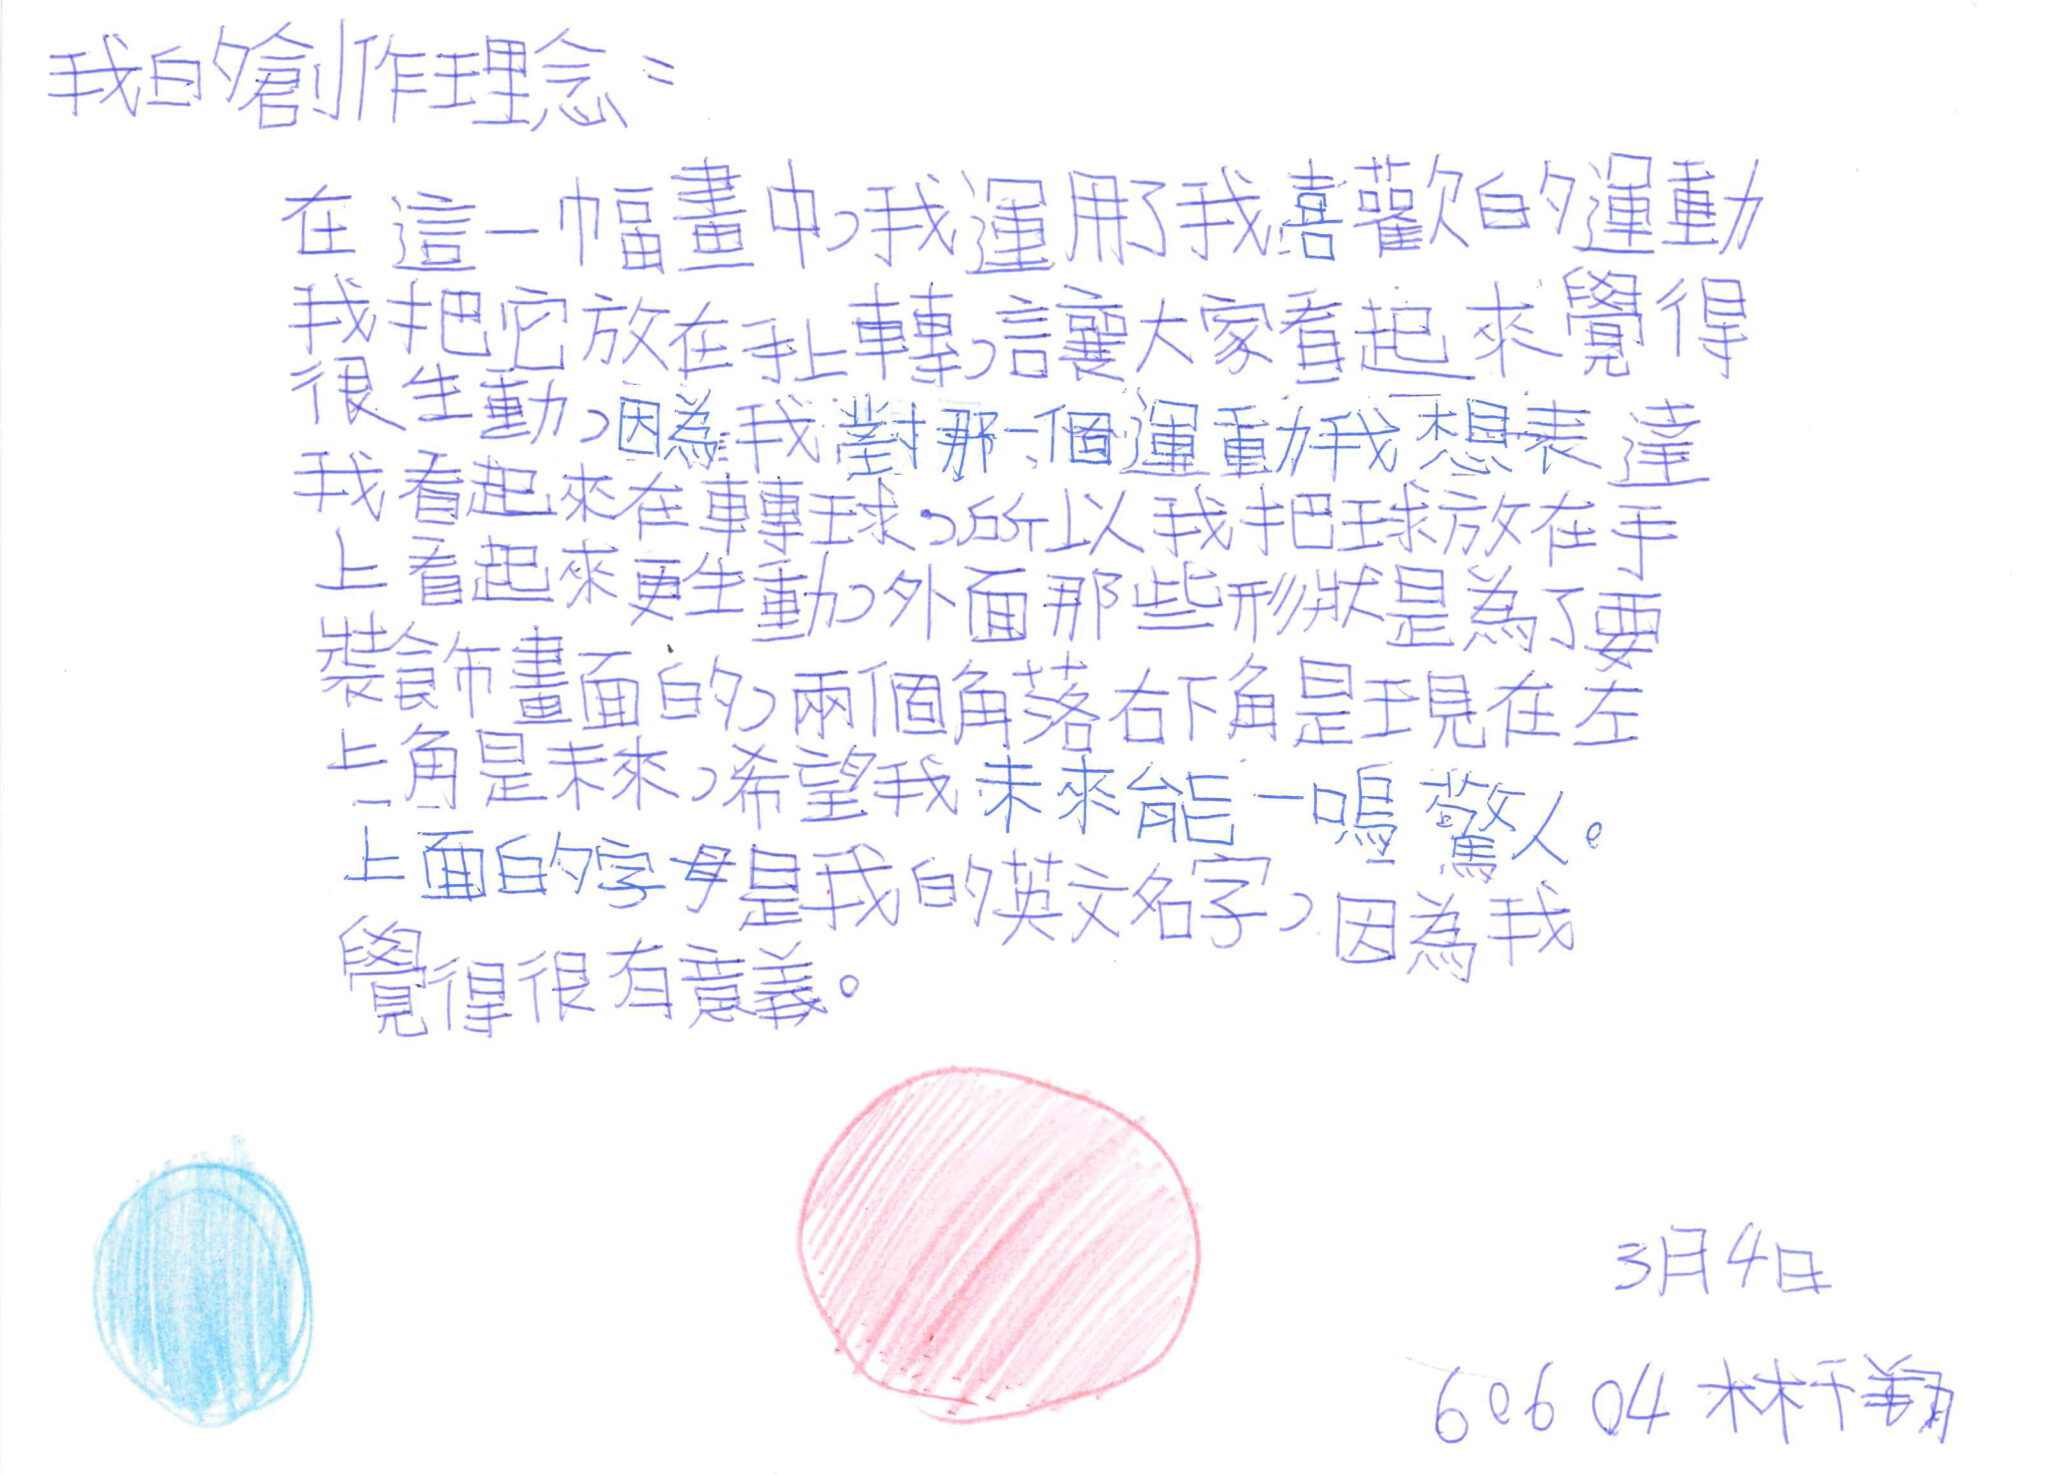 我的創作理念：
在這一幅畫中，我運用了我喜歡的運動
我把它放在手上轉，讓大家看起來覺得
很生動，因為我對那一個運動我想表達
我看起來在轉球，所以我把球放在手
上看起來更生動，外面那些形狀是為了要
裝飾畫面的，兩個角落右下角是現在左
上角是未來，希望我未來能一鳴驚人。
上面的字母是我的英文名字，因為我
覺得很有意義。
3月4日
606 04 林千勛